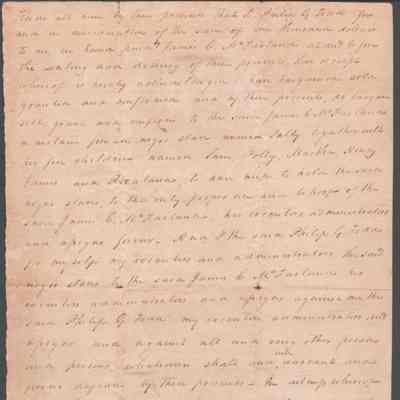 Know all men by these presents that I Philip G. Todd for
and in consideration of the sum of one thousand dollars
to me in hand paid James C. McFarland at and before
the sealing and delivery of these presents, the receipt
whereof is hereby acknowledged have bargained sold
granted and confirmed and by these presents, do bargain
sell, grant and confirm to the said James C. McFarland
a certain female negro slave named Sally together with
her five children named Sam, Polly, Martha, Henry
James and to have and to hold the said
negro slaves, to the only proper use and behoof of the
said James C. McFarland, his executors administrators
and assigns forever. And I the said Philip G. Todd
for myself my executors and administrators the said
negro slaves to the said James C. McFarland his
executors administrators and assigns against me the
said Philip G. Todd my executors administrators and
assigns and against all and every other person
and persons whatsoever shall and will warrant and
defend by these presents In whereof